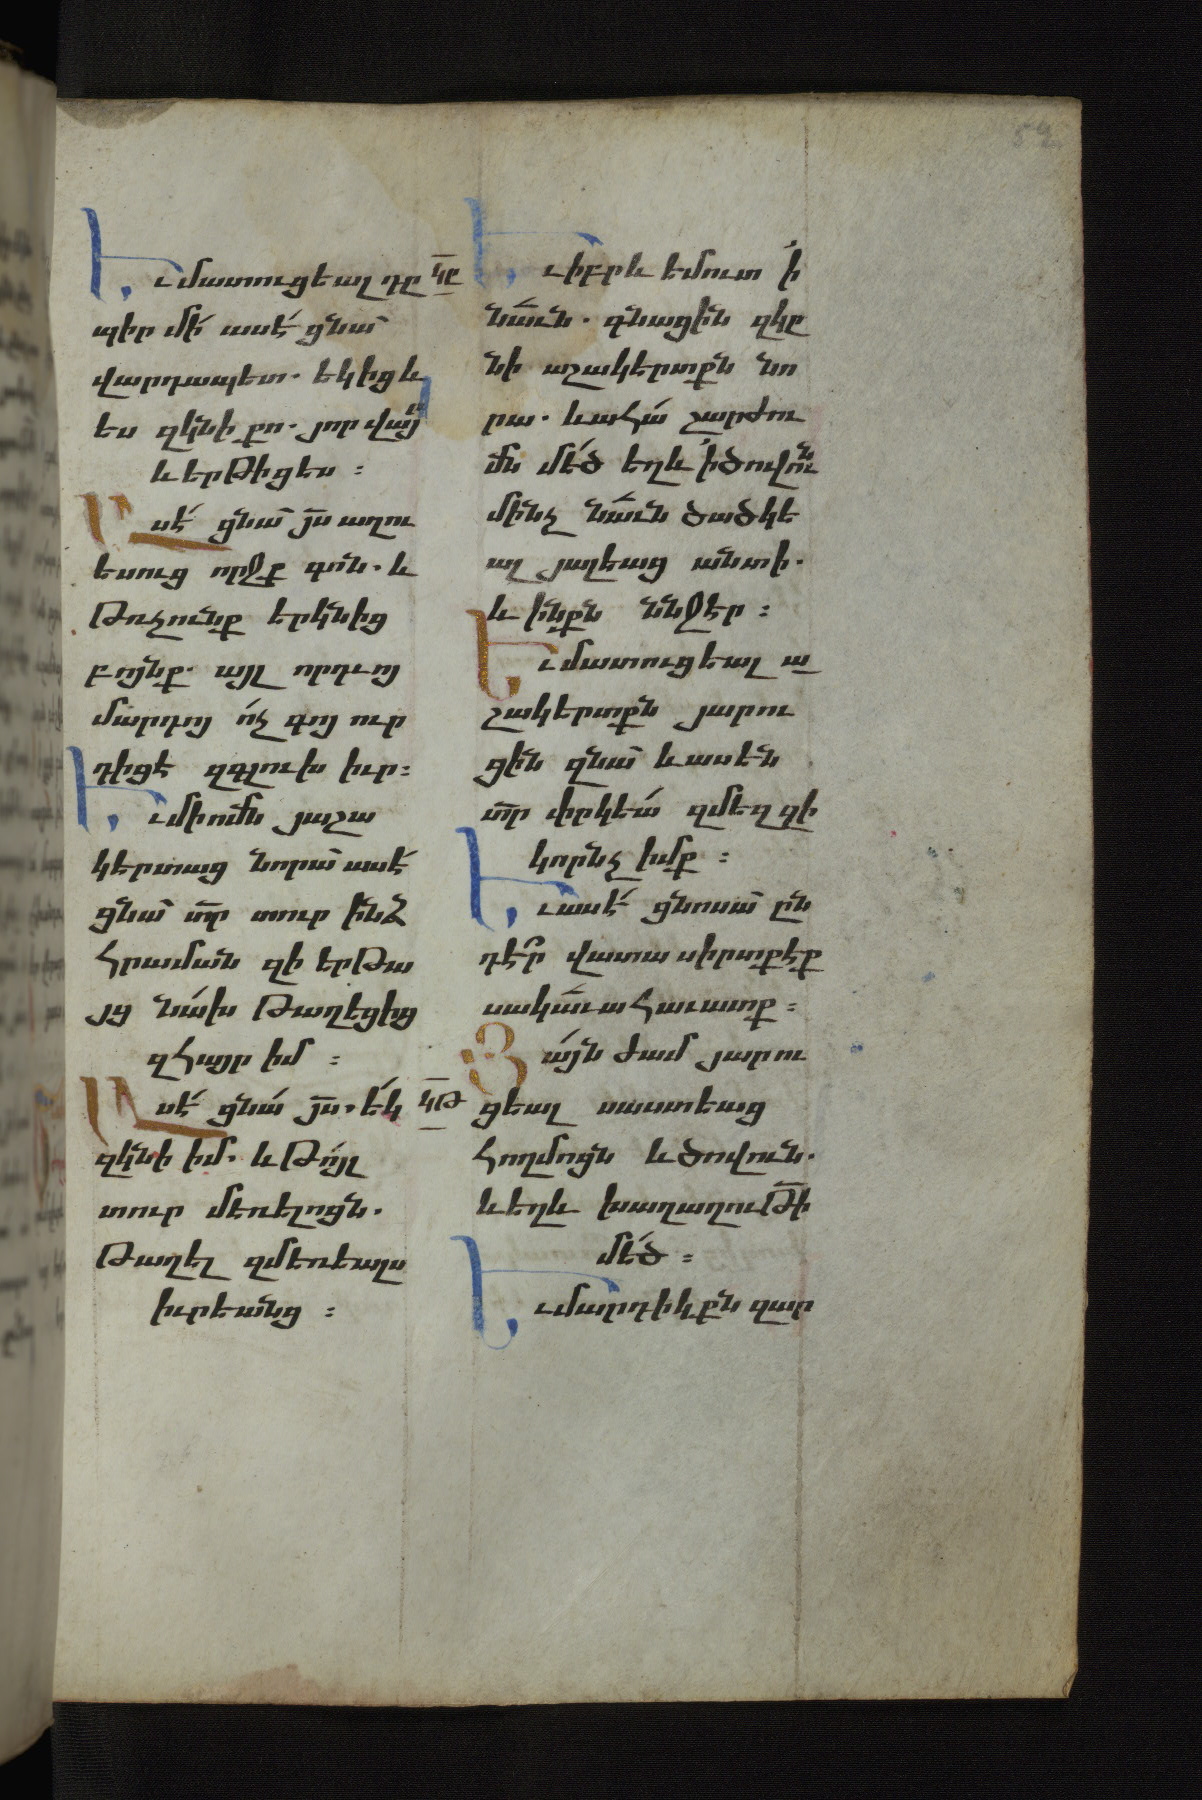 Եւ մատուցեալ դը
պիր մի՛ ասէ՛ ցնա՛
վարդապետ. եկից և
ես զկնի քո. յոր վա՛յր
և երթիցես ։
Ասէ՛ ցնա՛ յս աղու
եսուց որջք գոն. և
թռչունք երկնից
բոյնք. այլ որդւոյ
մարդոյ ո՛չ գոյ ուր
դիցէ զգլուխ իւր։
Եւ միումն յաշա
կերտաց նորա՛ ասէ՛
ցնա՛ տր տուր ինձ
հրաման զի երթա
յց նա՛խ թաղեցից
զհայր իմ ։
Ասէ՛ ցնա՛ յս. ե՛կ
զկնի իմ. և թո՛յլ
տուր մեռելոցն.
թաղել զմեռեալս
իւրեանց ։
կը
Եւ իբրև եմուտ ՛ի
նաւն. գնացին զկը
նի աշակերտքն նո
րա. և ահա՛ շարժու
մն մե՛ծ եղև ՛ի ծովուն
մինչ նաւն ծածկե
ալ յալեաց անտի.
և ինքն ննջէր ։
Եւ մատուցեալ ա
շակերտքն յարու
ցին զնա՛ և ասեն
տր փրկեա՛ զմեզ զի
կորնչիմք ։
Եւ ասէ՛ ցնոսա՛ ըն
դէ՞ր վատասիրտք էք
սակաւահաւատք ։
կթ
Յայն ժամ յարու
ցեալ սաստեաց
հողմոցն և ծովուն.
և եղև խաղաղութի
մե՛ծ ։
Եւ մարդիկքն զար